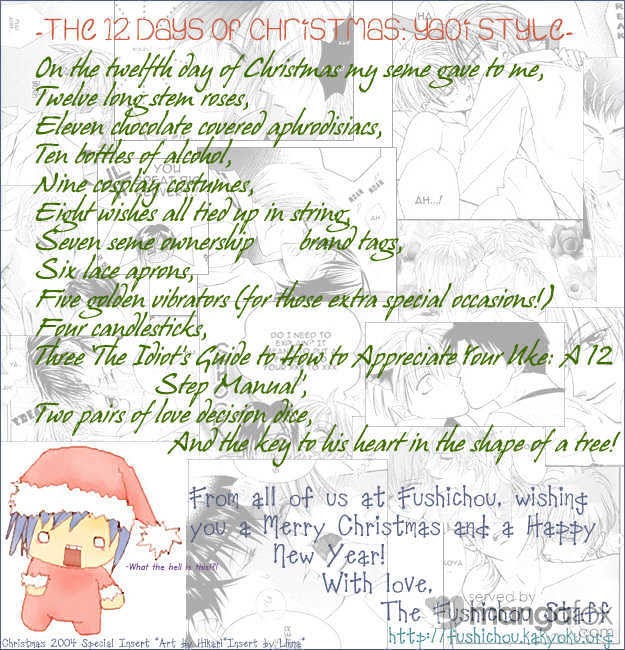 -THE 12 DAYS OF CHRISTMAS: YAOI STYLE-
On the twelfth day of Christmas my seme gave to me,
Twelve long stem roses,
Eleven chocolate covered aphrodisiacs,
Ten bottles of alcohol,
Nine cosplay costumes,
Eight wishes all tied up in string,
Seven seme ownership brand tags,
Six lace aprons,
Five golden vibrators (for those extra special occasions!)
Four candlesticks,
Three 'The Idiot's Guide to How to Appreciate Your Uke: A 12
Step Manual',
Two pairs of love decision dice,
And the key to his heart in the shape of a tree!
From all of us at Fushichou, wishing
you a Merry Christmas and a Happy
New Year!
With love,
The Fushichou Staff
http://fushichou.kakyoku.org
-What the hell is this?!
Christmas 2004 Special Insert *Art by Hikari*Insert by Linna*
served by
mangafox
.com
HA!
AH...!
AH
YOU
GREAT BIG
PERVERT!
DO I NEED TO
EXPLAIN? IT